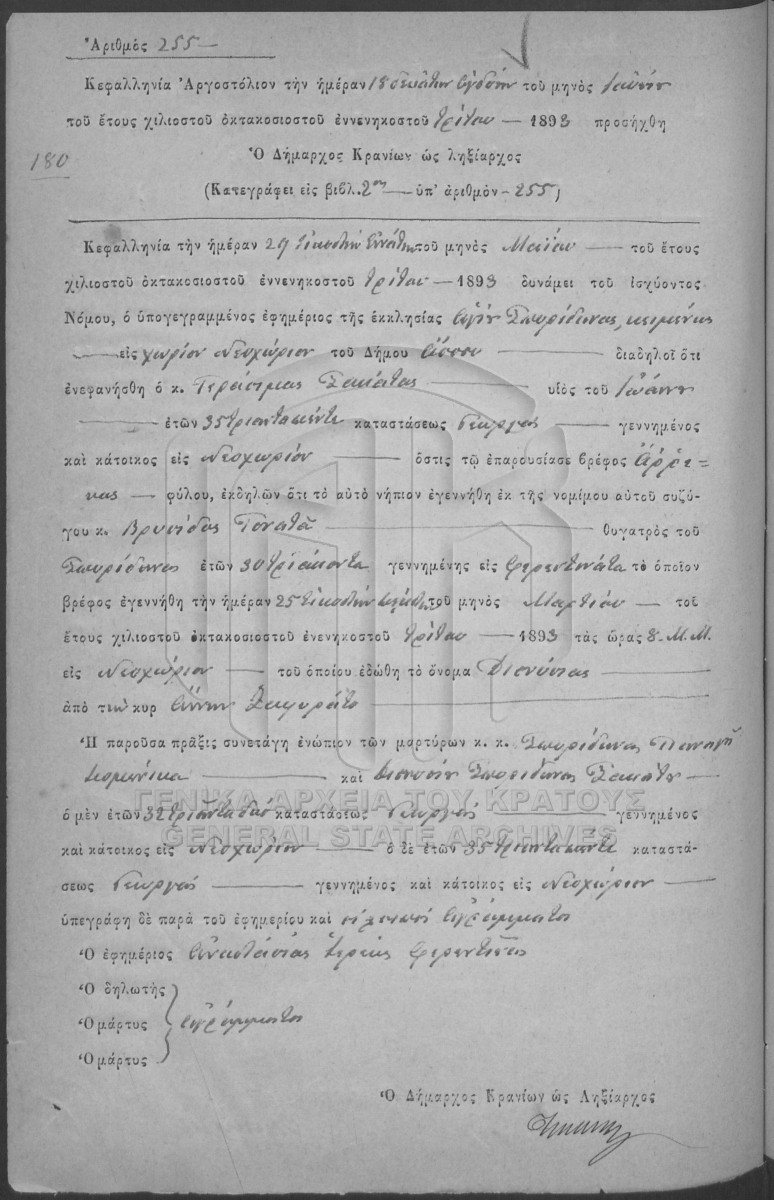 Ἀριθμὸς 255 —
Κεφαλληνία Ἀργοστόλιον τὴν ἡμέραν 18 δεκάτην ὀγδόην τοῦ μηνὸς Ἰουνίου
τοῦ ἔτους χιλιοστοῦ ὀκτακοσιοστοῦ ἐννενηκοστοῦ τρίτου — 1893 προσήχθη
180
Ὁ Δήμαρχος Κρανίων ὡς ληξίαρχος
(Κατεγράφει εἰς βιβλ. 2ον — ὑπ' ἀριθμὸν — 255)
Κεφαλληνία τὴν ἡμέραν 29 εἰκοστὴν ἐννάτην τοῦ μηνὸς Μαΐου — τοῦ ἔτους
χιλιοστοῦ ὀκτακοσιοστοῦ ἐννενηκοστοῦ τρίτου — 1893 δυνάμει τοῦ ἰσχύοντος
Νόμου, ὁ ὑπογεγραμμένος ἐφημέριος τῆς ἐκκλησίας Ἁγίου Σπυρίδωνος, κειμένης
— εἰς χωρίον Νεοχώριον τοῦ Δήμου Ἄσσου — διαδηλοῖ ὅτι
ἐνεφανήσθη ὁ κ. Γεράσιμος Σακάτος — υἱὸς τοῦ Ἰωάννου
— ἐτῶν 35 τριαντα πέντε καταστάσεως γεωργὸς — γεννημένος
καὶ κάτοικος εἰς Νεοχώριον — ὅστις τῷ ἐπαρουσίασε βρέφος ἄρρε-
νος — φύλου, ἐκδηλῶν ὅτι τὸ αὐτὸ νήπιον ἐγεννήθη ἐκ τῆς νομίμου αὐτοῦ συζύ-
γου κ. Βρυσίδος Γονατᾶ — θυγατρὸς τοῦ
Σπυρίδωνος ἐτῶν 30 τριάκοντα γεννημένης εἰς Φερεντινάτα τὸ ὁποῖον
βρέφος ἐγεννήθη τὴν ἡμέραν 25 εἰκοστὴν πέμπτην τοῦ μηνὸς Μαρτίου — τοῦ
ἔτους χιλιοστοῦ ὀκτακοσιοστοῦ ἐνενηκοστοῦ τρίτου — 1893 τὰς ὥρας 8. Μ. Μ.
εἰς Νεοχώριον — τοῦ ὁποίου ἐδώθη τὸ ὄνομα Διονύσιος —
ἀπὸ τὴν κυρ Ἄννην —
Ἡ παροῦσα πρᾶξις συνετάγη ἐνώπιον τῶν μαρτύρων κ. κ. Σπυρίδωνος Παναγῆ
— καὶ Διονυσίου Σπυρίδωνος Σακάτου —
ὁ μὲν ἐτῶν 32 τριαντα δύο καταστάσεως γεωργὸς — γεννημένος
καὶ κάτοικος εἰς Νεοχώριον — ὁ δὲ ἐτῶν 35 τριαντα πέντε καταστά-
σεως γεωργὸς — γεννημένος καὶ κάτοικος εἰς Νεοχώριον —
ὑπεγράφη δὲ παρὰ τοῦ ἐφημερίου καὶ οἱ λοιποὶ ἀγράμματοι
Ὁ ἐφημέριος Ἀναστάσιος ἱερεὺς Φερεντῖνος
Ὁ δηλωτὴς
Ὁ μάρτυς ἀγράμματοι
Ὁ μάρτυς
Ὁ Δήμαρχος Κρανίων ὡς Ληξίαρχος
ΓΕΝΙΚΑ ΑΡΧΕΙΑ ΤΟΥ ΚΡΑΤΟΥΣ
GENERAL STATE ARCHIVES